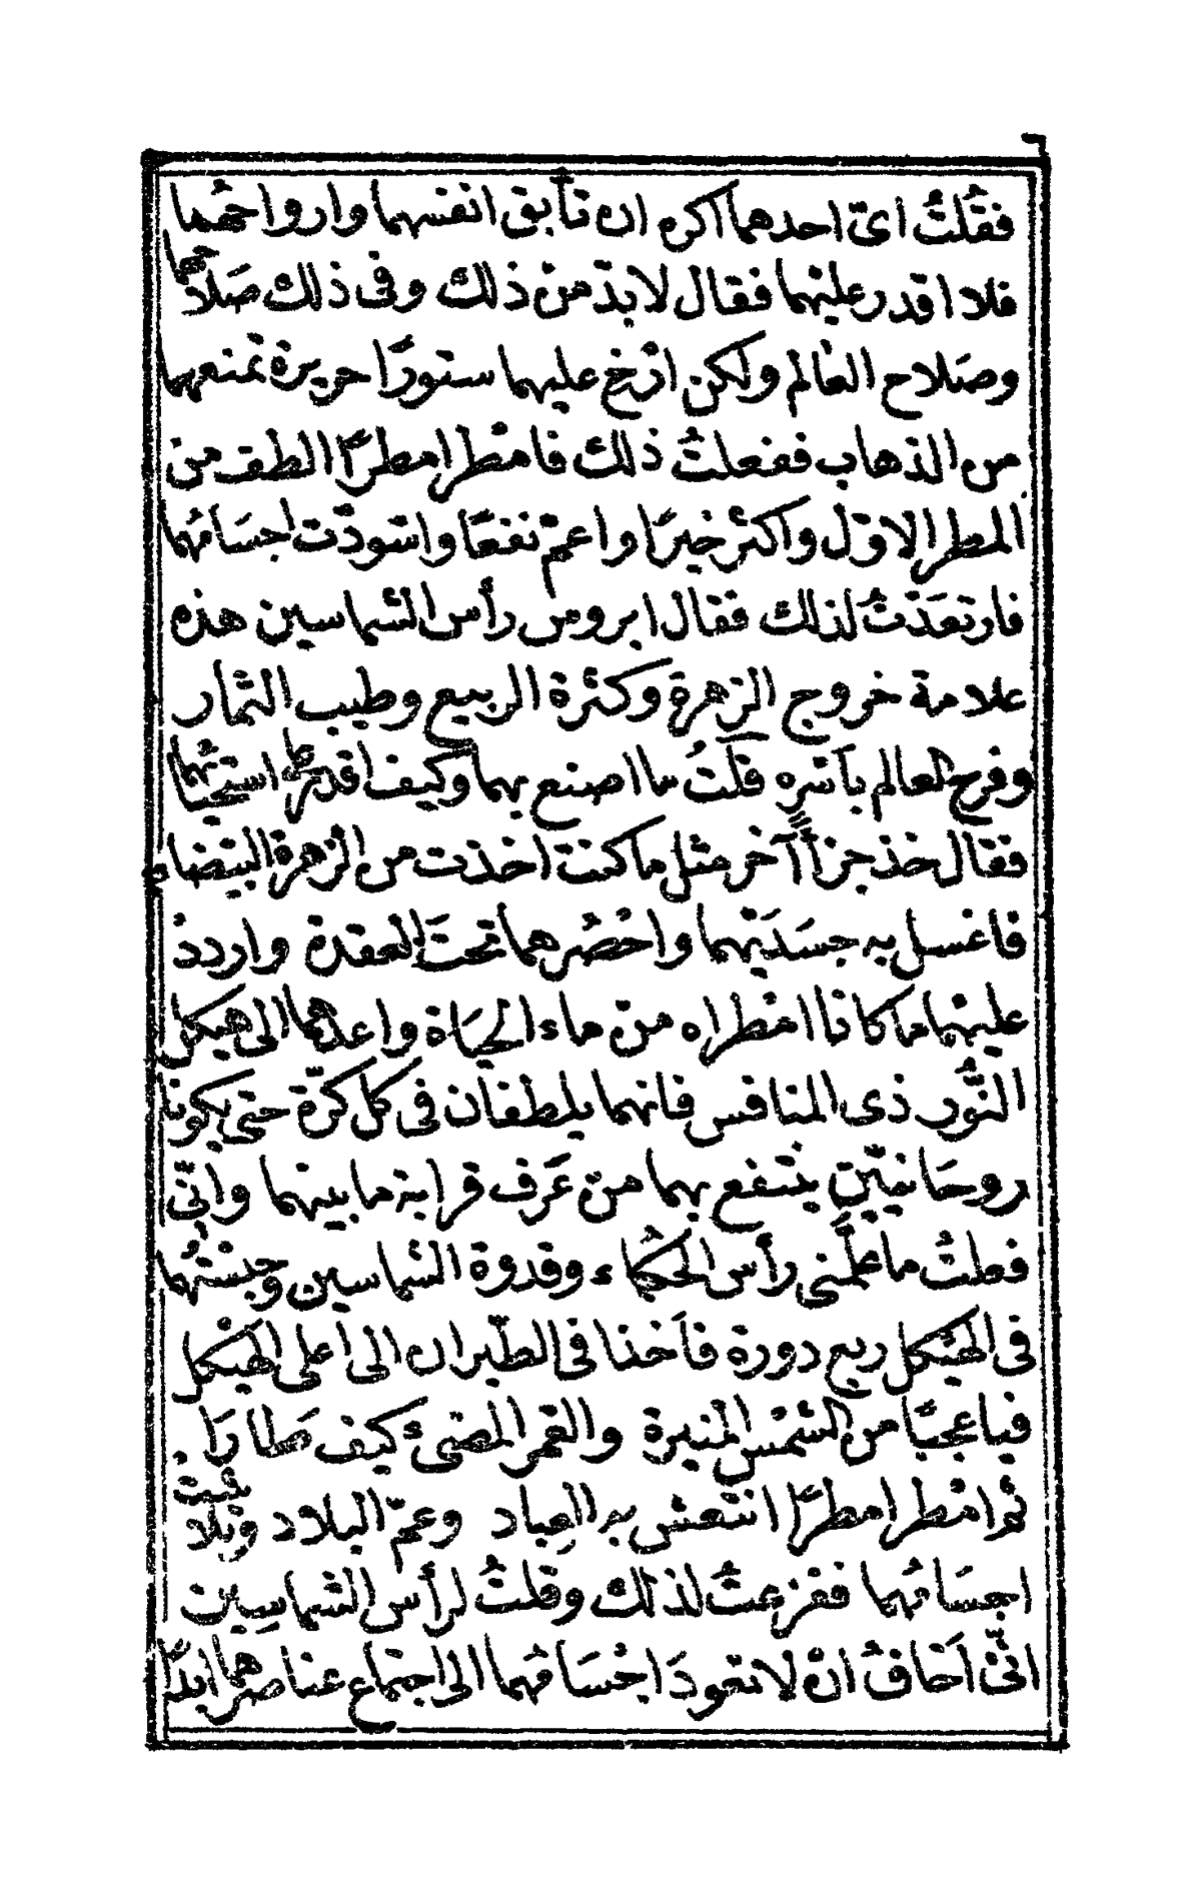 ٦
فقلتُ اىّ احدهما اكره ان تأبق انفسهما وارواحُهما
فلا اقدر عليهما فقال لا بدّ من ذلك وفى ذلك صَلاحهما
وصَلاح العالم ولكن ارْخ عليهما ستورًا حريرة تمنعهما
من الذهاب ففعلتُ ذلك فامْطرا مطرًا الطف من
المطر الاوّل واكثرَ خيرًا واعمّ نفعًا واسْودّت اجسَامُهما
فارتعَدْتُ لذلك فقال ابروس رأس الشماسين هذه
علامة خروج الزهرة وكثرة الربيع وطيب الثمار
وفرح العالم بأسْره قلتُ ما اصنع بهما وكيف اقدر على استحيائهما
فقال خذ جزأً آخر مثل ما كنت اخذت من الزهرة البيضاء
فاغسل به جسَدَيْهما واحْصُرهما تحتَ العقدة واردد
عليهما ما كانا امْطراه من ماء الحيَاة واعدهما الى هيكل
النُّور ذى المنافس فانهما يلطفان فى كل كرّة حتى يكونا
روحَانيّين ينتفع بهما من عَرف قرابة ما بينهما وانّى
فعلتُ ما علَّمنى رأس الحكماء وقدوة الشماسين وحبسْتُهما
فى الهيْكل ربع دورة فأخذا فى الطّيران الى أعلى الهيْكل
فيا عجبًا من الشمْس المنيرة والقمر المضىء كيف طارَا
ثم امْطرا مطرًا انتعش به العِباد وعمّ البلاد وبلاد
اجسَامُهما ففزعتُ لذلك وقلتُ لرأس الشماسِين
انّى اَخافُ انْ لا تعودَ اجْسَامُهما الى اجتماع عناصرهما ابدًا